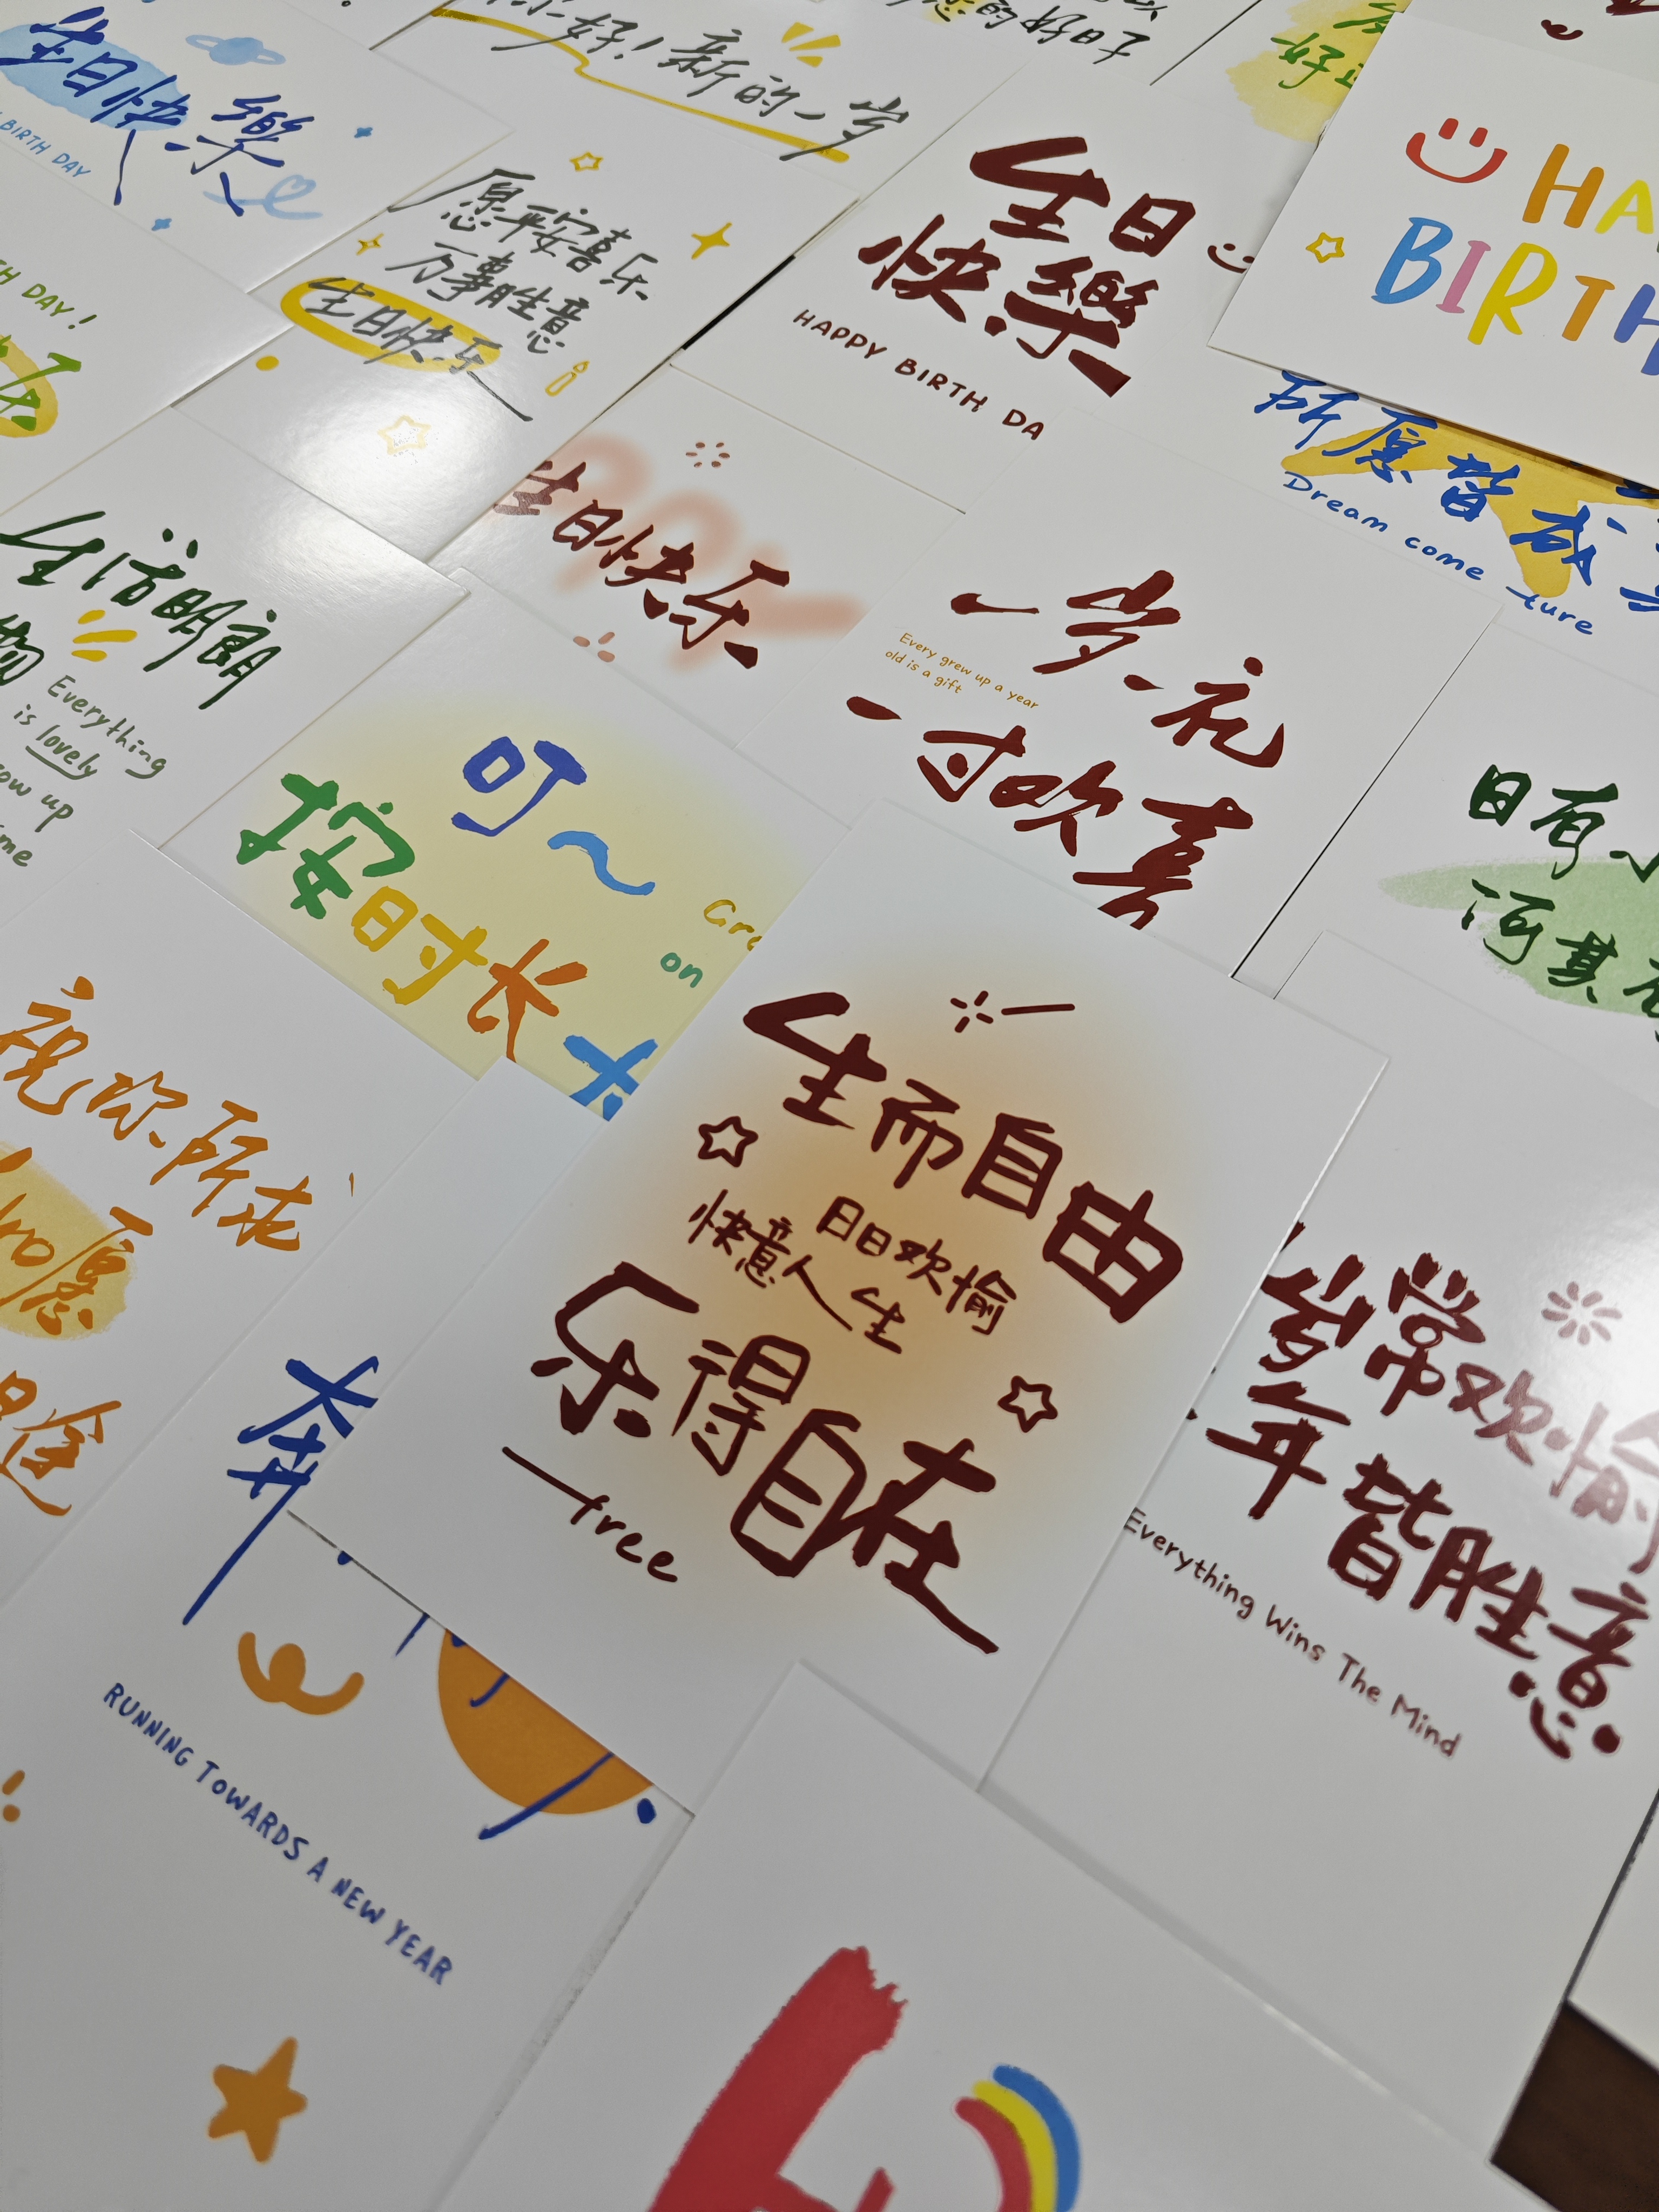 生日快樂
BIRTH DAY
好!新的一岁
的好日子
生日
快樂
HAPPY BIRTH DA
BIRTH
愿平安喜乐
万事胜意
生日快乐
TH DAY!
生日快乐
所愿皆成
Dream come
ture
生活明朗
Everything
is lovely
up
me
一岁一礼
Every grew up a year
old is a gift
一寸欢喜
叮~
按时长
on
日有
河其
祝你所求
愿
生而自由
日日欢愉
快意人生
乐得自在
free
岁常欢愉
年皆胜意
Everything Wins The Mind
奔
RUNNING TOWARDS A NEW YEAR